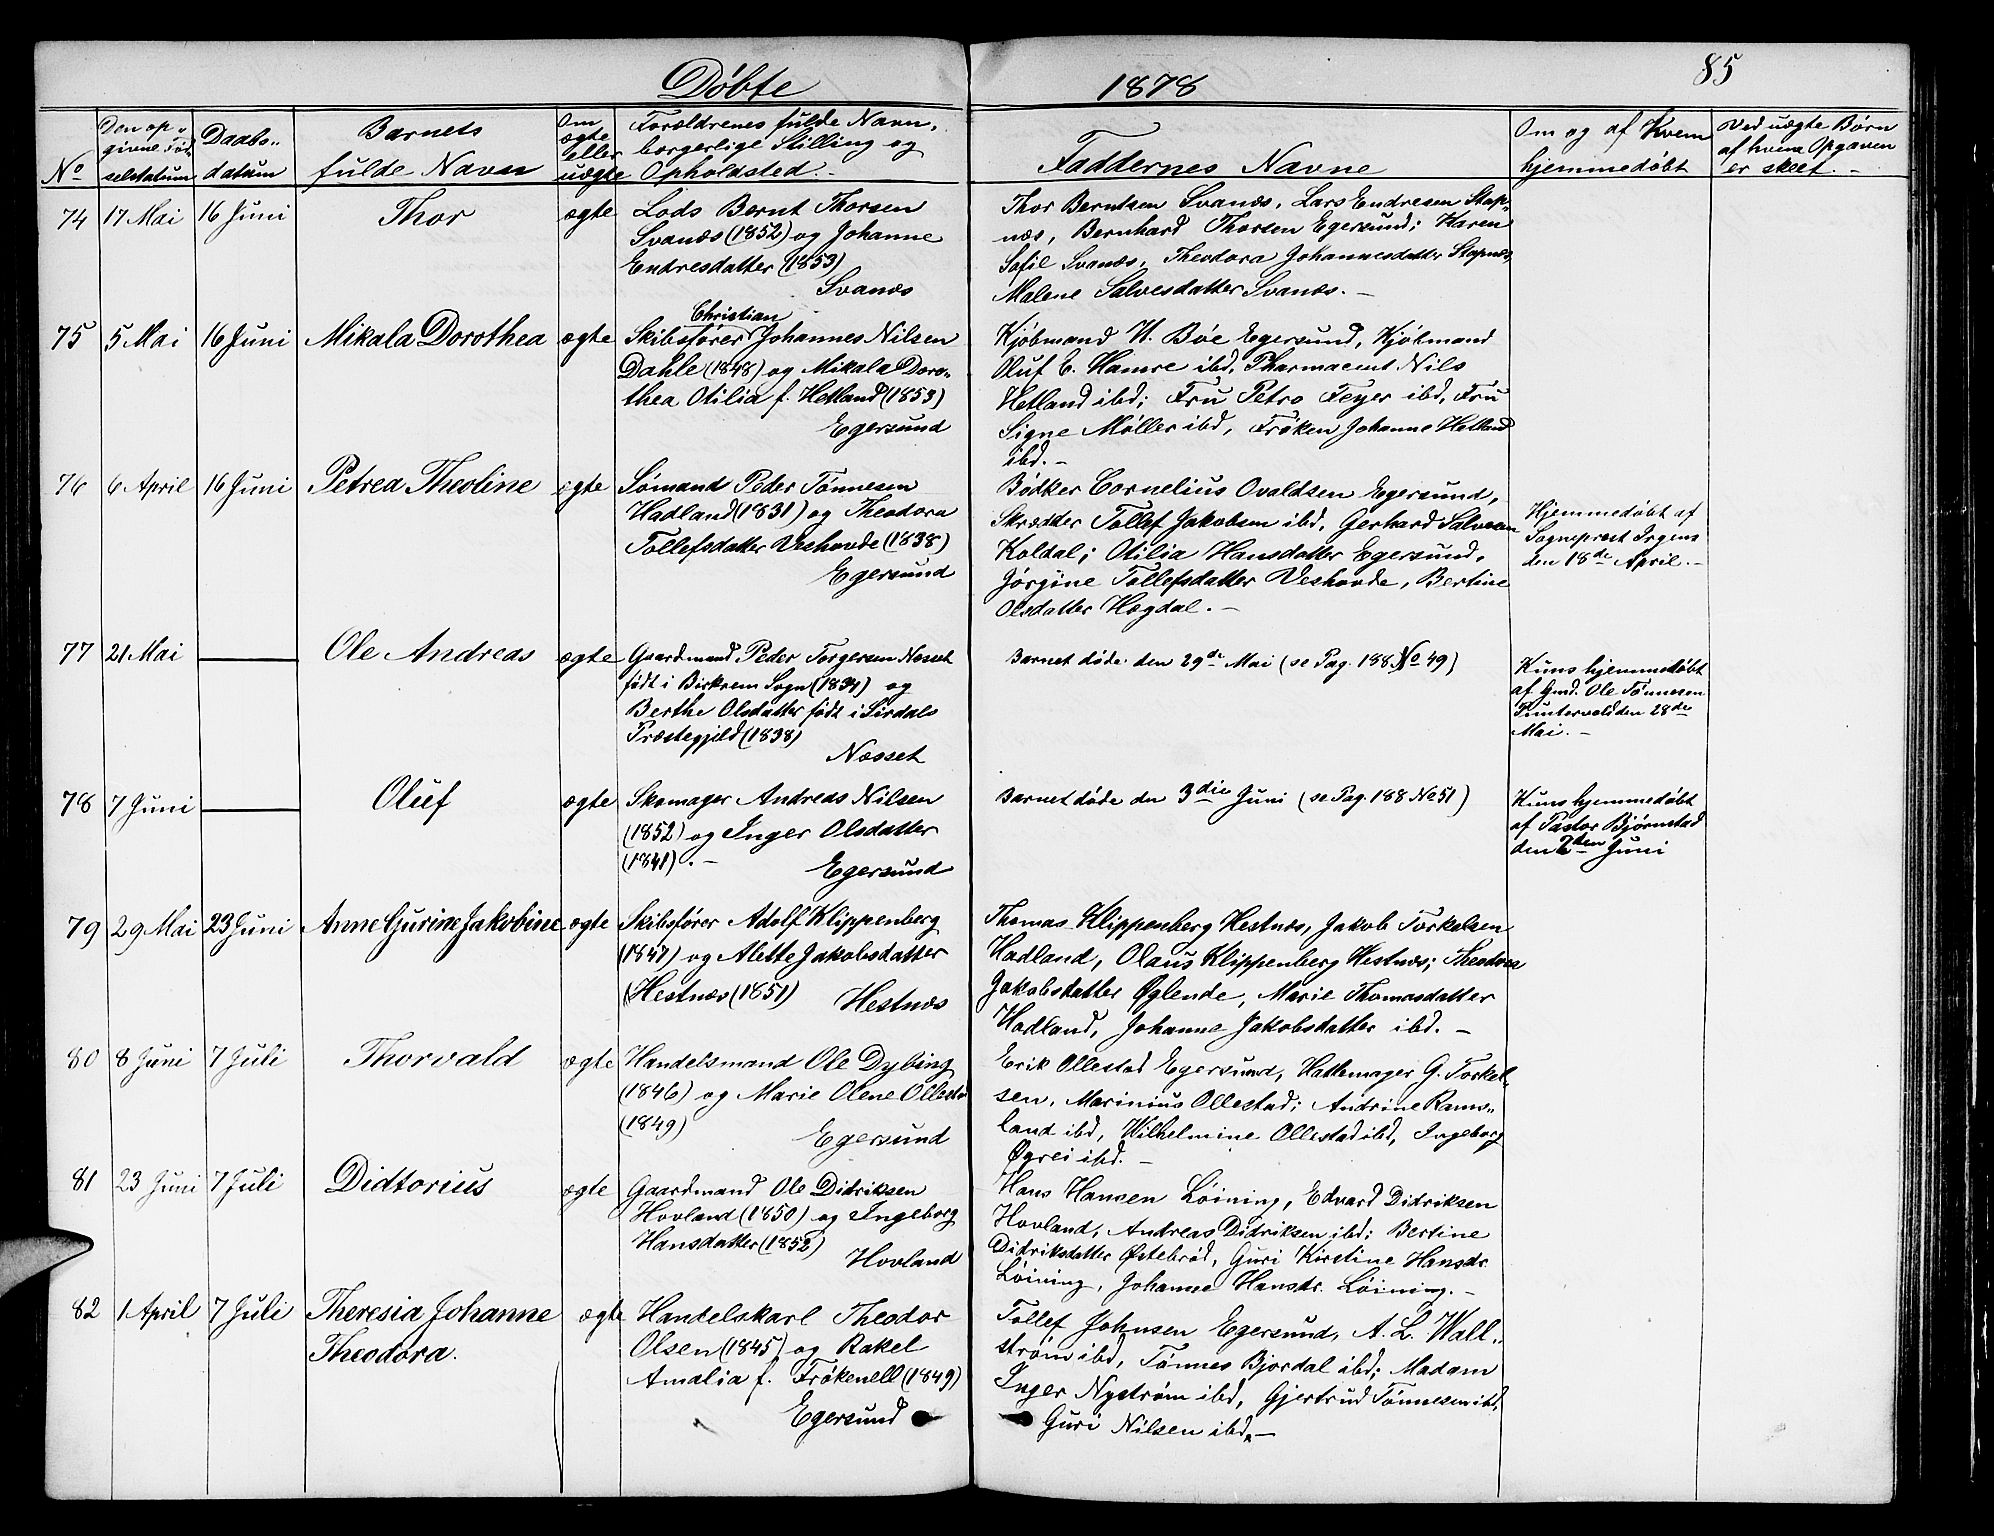 85
Døbte 1878
No
Den op-
givne Fød-
selsdatum
Daabs-
datum
Barnets
fulde Navn
Om
ægte
eller
uægte
Forældrenes fulde Navn,
borgerlige Stilling og
Opholdsted.-
Faddernes Navne
Om og af Hvem
hjemmedøbt
Ved uægte Børn
af hvem Opgaven
er skeet.-
74 17 Mai 16 Juni Thor ægte
Lods Bernt Thorsen
Svanæs (1852) og Johanne
Endresdatter (1853)
Svanæs
Thor Berntsen Svanæs, Lars Endresen Stap-
næs, Bernhard Thorsen Egersund; Karen
Sofie Svanæs, Theodora Johannesdatter Stapnæs,
Malene Salvesdatter Svanæs.-
75 5 Mai 16 Juni Mikala Dorothea ægte
Christian
Skibsfører Johannes Nilsen
Dahle (1848) og Mikala Doro-
thea Otilia f. Hetland (1853)
Egersund
Kjøbmand H. Bøe Egersund, Kjøbmand
Oluf E. Hamre ibd, Pharmaceut Nils
Hetland ibd; Fru Petro Feyer ibd, Fru
Signe Møller ibd, Frøken Johanne Hetland
ibd.-
76 6 April 16 Juni Petrea Theoline ægte
Sømand Peder Tønnesen
Hadland (1831) og Theodora
Tollefsdatter Veshovde (1838)
Egersund
Bødker Cornelius Ovaldsen Egersund,
Skrædder Tollef Jakobsen ibd, Gerhard Salvesen
Koldal; Otilia Hansdatter Egersund,
Jørgine Tollefsdatter Veshovde, Bertine
Olsdatter Hægdal.-
Hjemmedøbt af
Sogneprest Irgens
den 18de April.-
77 21 Mai Ole Andreas ægte
Gaardmand Peder Torgersen Næsset
født i Birkrem Sogn (1834) og
Berthe Olsdatter født i Sirdals
Præstegjeld (1838)
Næsset
Barnet døde den 29de Mai (se Pag. 188 No 49)
Kuns hjemmedøbt
af Gmd. Ole Tønnesen
den 28de
Mai.-
78 7 Juni Oluf ægte
Skomager Andreas Nilsen
(1852) og Inger Olsdatter
(1841).-
Egersund
Barnet døde den 3die Juni (se Pag. 188 No 51)
Kuns hjemmedøbt
af Pastor Bjørnstad
den 2den Juni
79 29 Mai 23 Juni Anne Gurine Jakobine ægte
Skibsfører Adolf Klippenberg
(1847) og Alette Jakobsdatter
Hestnæs (1851) Hestnæs
Thomas Klippenberg Hestnæs, Jakob Torkelsen
Hadland, Olaus Klippenberg Hestnæs; Theodora
Jakobsdatter Øglende, Marie Thomasdatter
Hadland, Johanne Jakobsdatter ibd.-
80 8 Juni 7 Juli Thorvald ægte
Handelsmand Ole Dybing
(1846) og Marie Olene Ollestad
(1849)
Egersund
Erik Ollestad Egersund, Hattemager G. Torkel-
sen, Marinius Ollestad; Andrine Rams-
land ibd, Wilhelmine Ollestad ibd, Ingeborg
Øgrei ibd.-
81 23 Juni 7 Juli Didtorius ægte
Gaardmand Ole Didriksen
Hovland (1850) og Ingeborg
Hansdatter (1852)
Hovland
Hans Hansen Løining, Edvard Didriksen
Hovland, Andreas Didriksen ibd; Bertine
Didriksdatter Østebrød, Guri Kirstine Hansdr
Løining, Johanne Hansdr. Løining.-
82 1 April 7 Juli Theresia Johanne ægte
Theodora.
Handelskarl Theodor
Olsen (1845) og Rakel
Amalia f. Frøkenell (1849)
Egersund
Tollef Johnsen Egersund, A. L. Wall-
strøm ibd, Tønnes Bjordal ibd; Madam
Inger Nystrøm ibd, Gjertrud Tønnesen ibd,
Guri Nilsen ibd.-